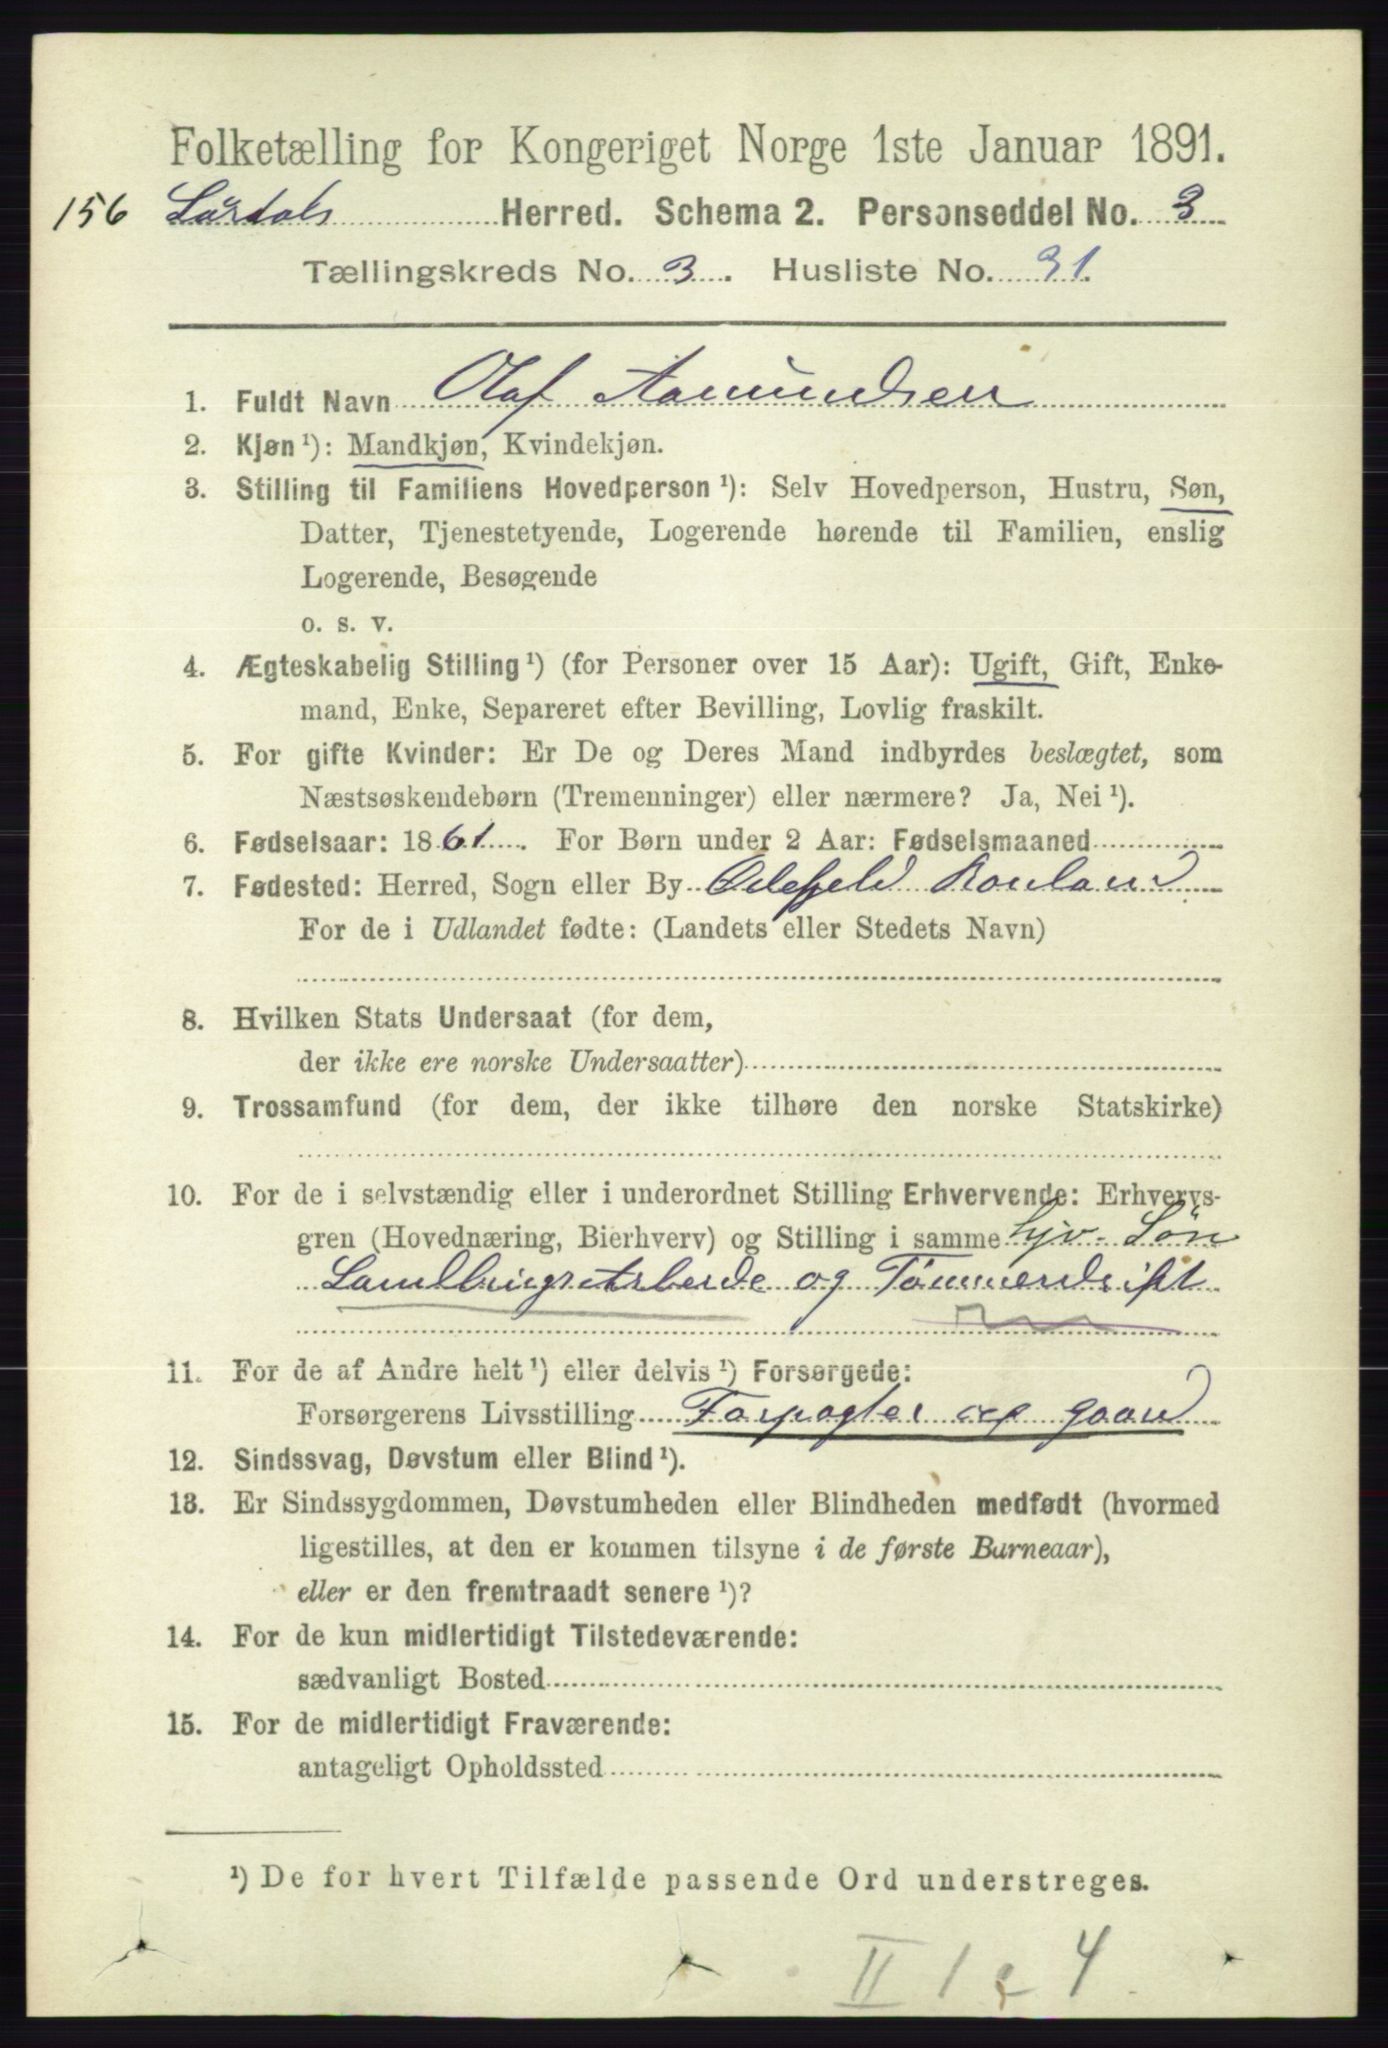 Folketælling for Kongeriget Norge 1ste Januar 1891.
156 Laurdals Herred. Schema 2. Personseddel No. 3
Tællingskreds No. 3. Husliste No. 31.
1. Fuldt Navn Olaf Aamundsen
2. Kjøn ¹): Mandkjøn, Kvindekjøn.
3. Stilling til Familiens Hovedperson ¹): Selv Hovedperson, Hustru, Søn,
Datter, Tjenestetyende, Logerende hørende til Familien, enslig
Logerende, Besøgende
o. s. v.
4. Ægteskabelig Stilling ¹) (for Personer over 15 Aar): Ugift, Gift, Enke-
mand, Enke, Separeret efter Bevilling, Lovlig fraskilt.
5. For gifte Kvinder: Er De og Deres Mand indbyrdes beslægtet, som
Næstsøskendebørn (Tremenninger) eller nærmere? Ja, Nei ¹).
6. Fødselsaar: 1861. For Børn under 2 Aar: Fødselsmaaned
7. Fødested: Herred, Sogn eller By Ødefjeld Rauland
For de i Udlandet fødte: (Landets eller Stedets Navn)
8. Hvilken Stats Undersaat (for dem,
der ikke ere norske Undersaatter)
9. Trossamfund (for dem, der ikke tilhøre den norske Statskirke)
10. For de i selvstændig eller i underordnet Stilling Erhvervende: Erhvervs-
gren (Hovednæring, Bierhverv) og Stilling i samme hjv. Sön
Landbrugsarbeide og Tömmerdrift
11. For de af Andre helt ¹) eller delvis ¹) Forsørgede:
Forsørgerens Livsstilling Forpagter gaard
12. Sindssvag, Døvstum eller Blind ¹).
13. Er Sindssygdommen, Døvstumheden eller Blindheden medfødt (hvormed
ligestilles, at den er kommen tilsyne i de første Barneaar),
eller er den fremtraadt senere ¹)?
14. For de kun midlertidigt Tilstedeværende:
sædvanligt Bosted
15. For de midlertidigt Fraværende:
antageligt Opholdssted
¹) De for hvert Tilfælde passende Ord understreges.
II 1 4